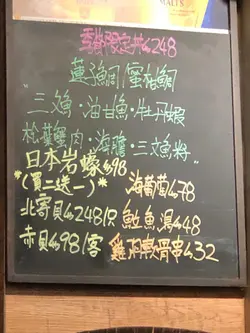 MALTS
季節限定丼$248
蓮子鯛/蜜柑鯛
三文魚·油甘魚·牡丹蝦
松葉蟹肉·海膽·三文魚籽
日本岩蠔$98
*(買二送一)*
海葡萄$78
北寄貝$248/只
魚湯$48
赤貝$98/客
雞軟骨串$32